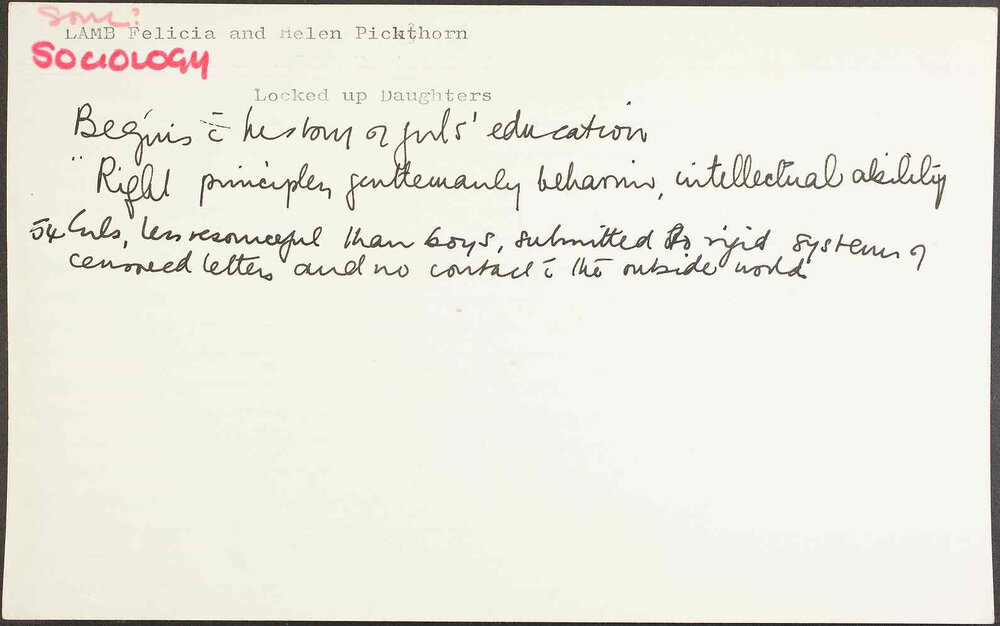 Soul?
LAMB Felicia and Helen Pickthorn
SOCIOLOGY
Locked up Daughters
Begins c̄ history of girls' education
"Right principles, gentlemanly behaviour, intellectual ability
54 Girls, less resourceful than boys, submitted to rigid systems of
censored letters and no contact c̄ the outside world